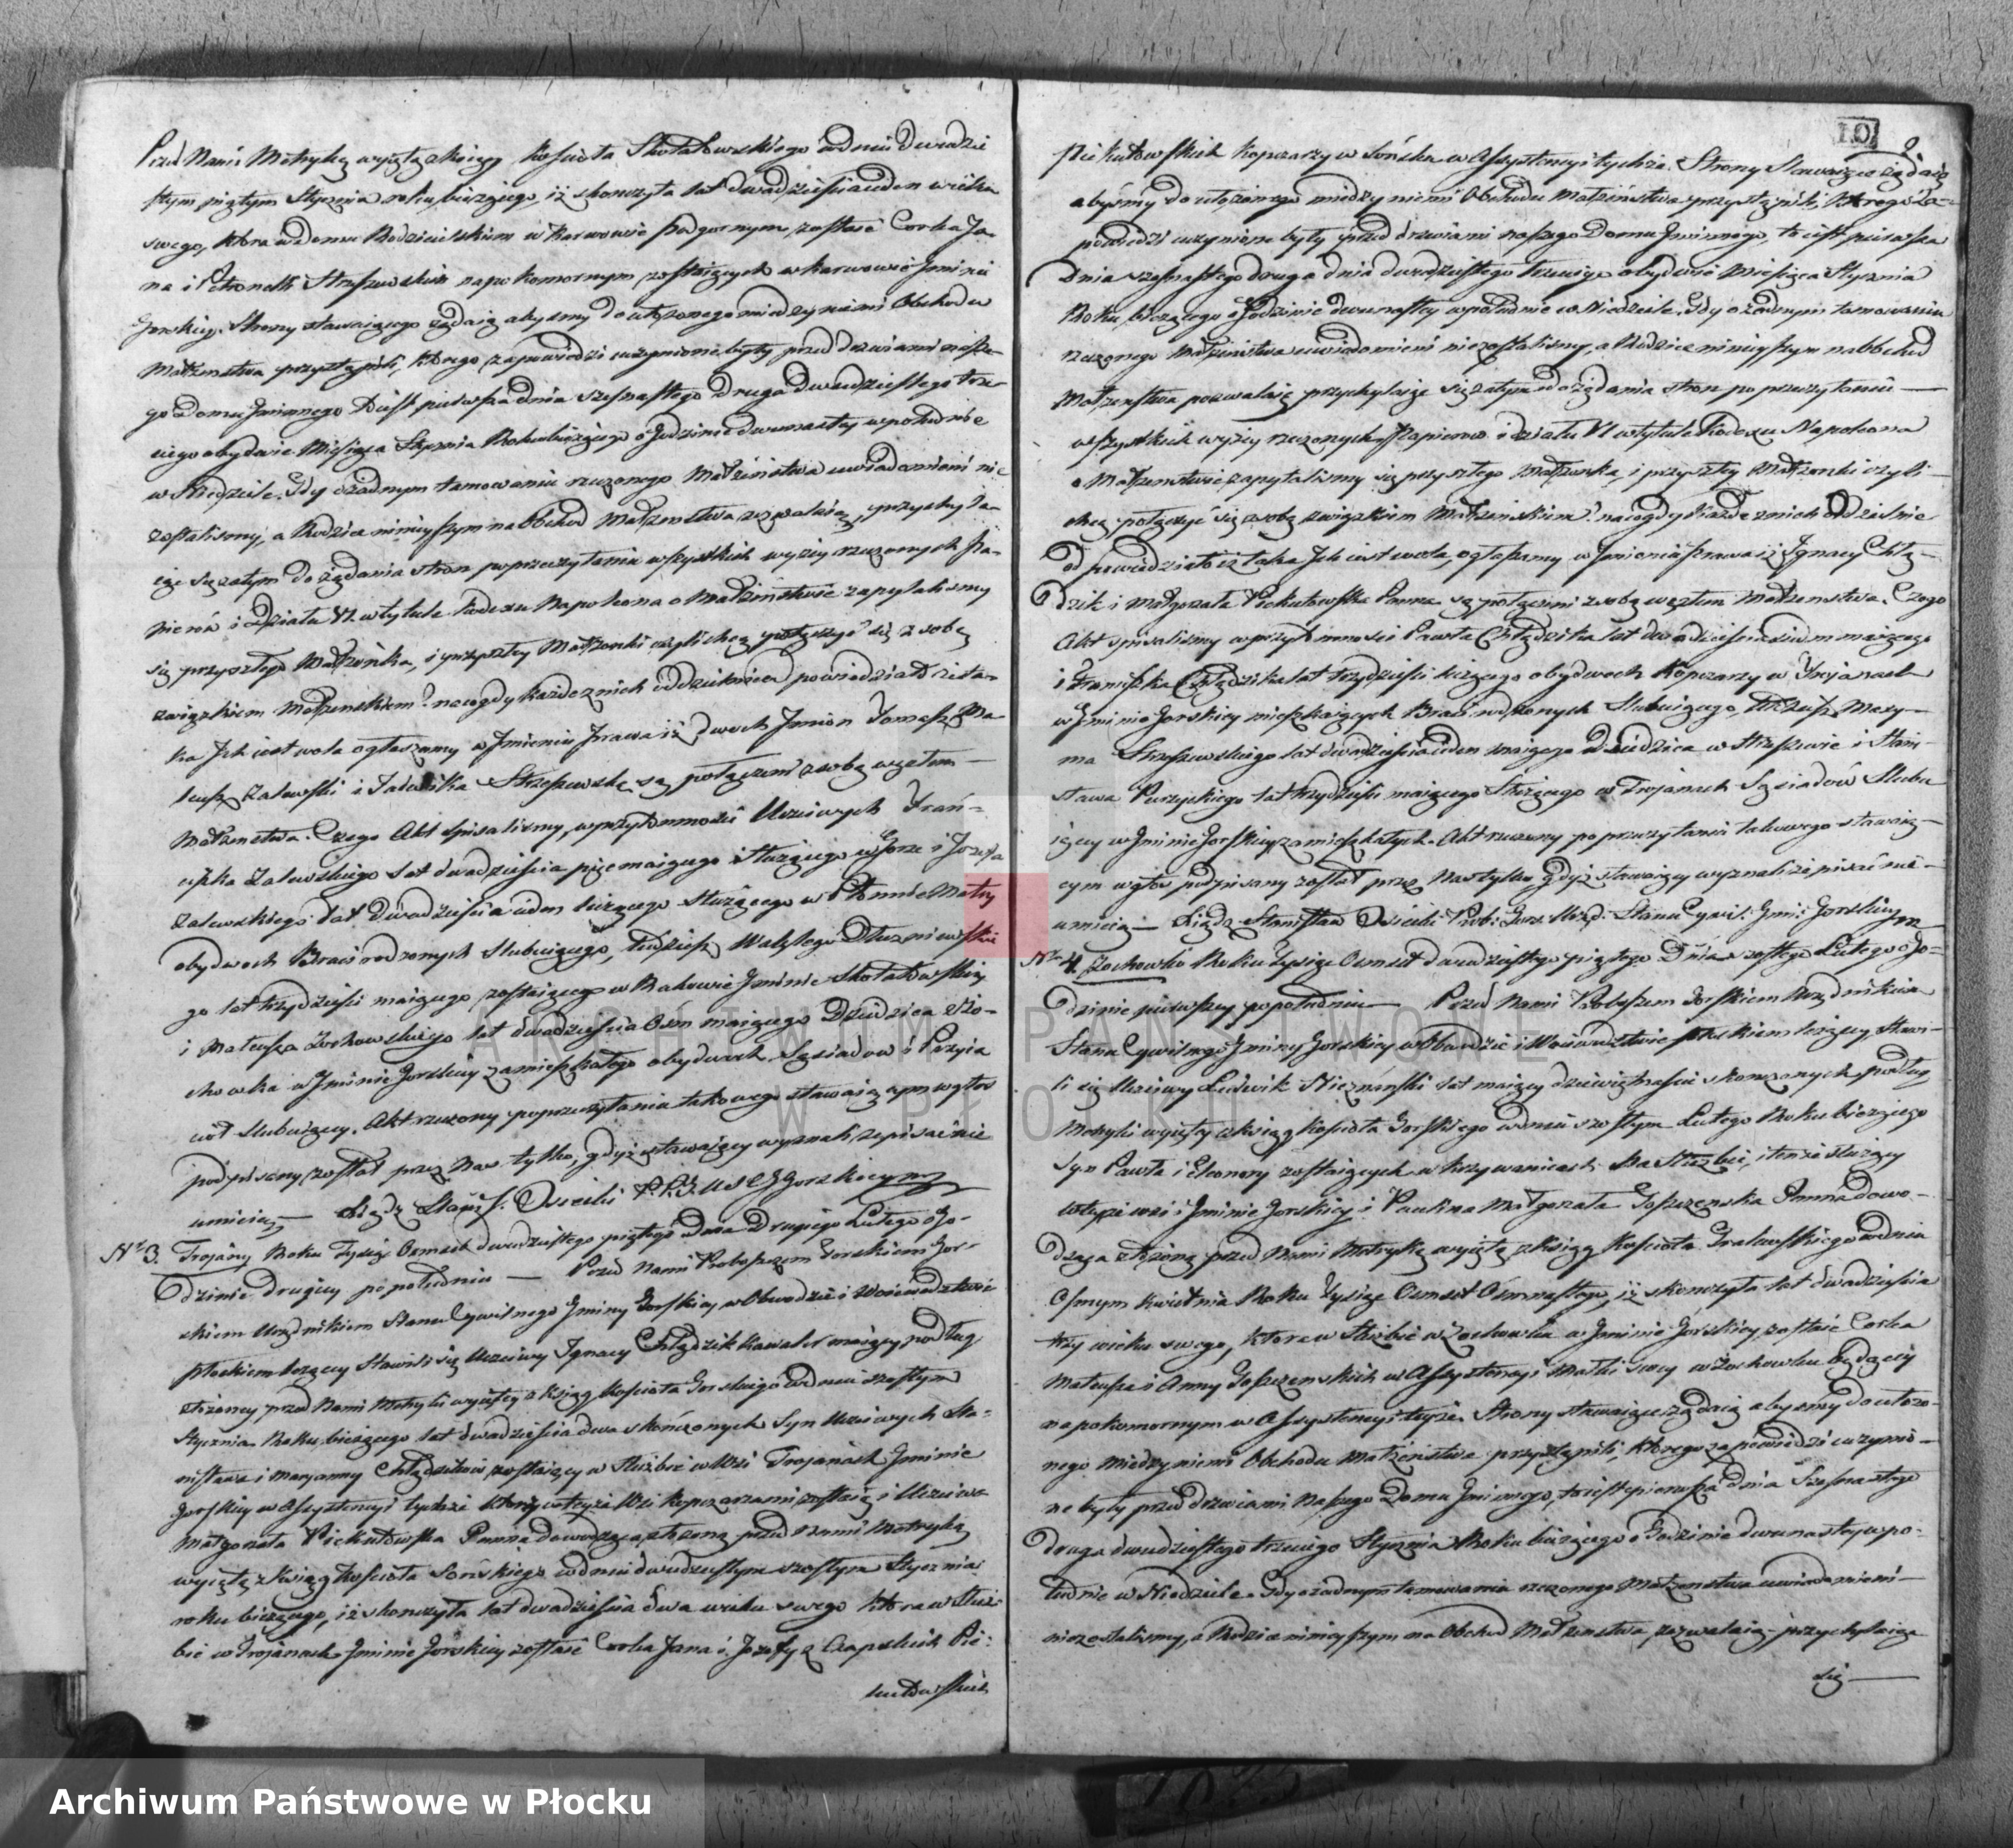 Przed Nami Metrykę wyiętą z księgi Kościoła Skołatowskiego w dniu dwudzie
stym piątym Stycznia roku bieżącego, iż skonczyła lat dwadzieścia ieden wieku
swego, ktora w domu Rodzicielskim w Karwowie Podgornym zostaie Corka Ja-
na i Petronelli Straszewskich na po komornym zostaiących w Karwowie Gminie
Gorskiey. Strony stawaiące żądaią abysmy do ułożonego miedzy niemi Obchodu
Małżenstwa przystąpili, ktorego zapowiedzi uczynione były przed drzwiami nasze-
go domu Gminnego to iest pierwsza dnia szesnastego druga dwudziestego trze-
ciego obydwie Miesiąca Stycznia Roku bieżącego o godzinie dwunastey w południe
w Niedziele. Gdy o żadnym tamowaniu rzeczonego Małżeństwa uwiadomieni nie
zostalismy, a Rodzice ninieyszym na Obchod Małżenstwa zezwalaią, przychyla-
iąc się zatym do żądania stron po przeczytaniu wszystkich wyżey rzeczonych Pa-
pierow i Działu VI w tytule Kodexu Napoleona o Małżeństwie zapytalismy
się przyszłego Małżonka, i przyszłey Małżonki czyli chcą połączyć się z sobą
związkiem Małżenskim? na co gdy każde z nich oddzielnie odpowiedziało iż ta-
ka Ich iest wola ogłaszamy w Imieniu Prawa iż dwoch Imion Tomasz Ma
teusz Zalewski i Salomea Straszewska są połączeni z sobą węzłem —
Małżenstwa. Czego Akt spisalismy w przytomności Uczciwych Fran-
ciszka Zalewskiego lat dwadzieścia pięc maiącego Służącego w Gorze i Jozefa
Zalewskiego lat dwadzieścia ieden liczącego służącego w Płomie Matry
obydwoch Braci rodzonych Slubuiącego, tudzież Walętego Dłuzniewskie
go lat trzydzieści maiącego zostaiącego w Rakowie Gminie Skołatowskiey
i Mateusza Zochowskiego lat dwadzieścia Osm maiącego Dziedzica Żo-
chowka w Gminie Gorskiey zamieszkałego obydwoch Sąsiadow i Przyia
cioł Slubuiącey. Akt rzeczony po przeczytaniu takowego stawaiącym w głos
podpisany został przez Nas tylko, gdyż stawaiący wyznali że pisać nie
umieią — Xiądz Stanisł. Osiecki P. G. U S C G Gorskiey
Nr 3. Trojany Roku Tysiąc Osmset dwudziestego piątego Dnia Drugiego Lutego o go-
dzinie drugiey po południu — Przed Nami Proboszczem Gorskim Gor-
skiem Urzędnikiem Stanu Cywilnego Gminy Gorskiey w Obwodzie i Woiewodztwie
Płockiem leżącey Stawił się Uczciwy Ignacy Chlądzik Kawaler maiący, podług
złożoney przed Nami Metryki wyiętey z ksiąg Kościoła Gorskiego w dniu szostym
Stycznia Roku bieżącego lat dwadzieścia dwa skończonych Syn Uczciwych Sta-
nisława i Maryanny Chlądzikow zostaiący w Służbie w Wsi Trojanach Gminie
Gorskiey w Assystencyi tychże ktorzy w teyże Wsi Kopczarzami zostaią i Uczciwa
Małgorzata Piekutowska Panna dowodząca złożoną przed Nami Metryką
wyiętą z ksiąg Kościoła Sońskiego w dniu dwudziestym szostym Stycznia
roku bieżącego, iż skonczyła lat dwadzieścia dwa wieku swego ktora w Służ-
bie w Trojanach Gminie Gorskiey zostaie Corka Jana i Jozefy z Czapskich Pie-
kutowskich
10 9
Piekutowskich Kopczarzy w Sońsku w Assystencyi tychże. Strony Stawaiące żądaią
abyśmy do ułożonego miedzy niemi Obchodu Małżeństwa przystąpili, ktorego Za-
powiedzi uczynione były przed drzwiami naszego Domu Gminnego, to iest pierwsza
Dnia szesnastego druga dnia dwudziestego trzeciego obydwie Miesiąca Stycznia
Roku bieżącego o Godzinie dwunastey w południe w Niedziele. Gdy o żadnym tamowaniu
rzeczonego Małżenstwa uwiadomieni nie zostalismy, a Rodzice ninieyszym na Obchod
Małżenstwa pozwalaią przychylaiąc się zatym do żądania stron po przeczytaniu —
wszystkich wyżey rzeczonych Papierow i działu VI w tytule Kodexu Napoleona
o Małżenstwie zapytalismy się przyszłego Małżonka, i przyszłey Małżonki czyli
chcą połączyć się z sobą związkiem Małżenskiem? na co gdy każde z nich oddzielnie
odpowiedziało iż taka Ich iest wola, ogłaszamy w Imieniu Prawa iż Ignacy Chlą-
dzik i Małgorzata Piekutowska Panna są połączeni z sobą węzłem Małżenstwa. Czego
Akt spisalismy w przytomności Pawła Chlądzika lat dwadzieścia siedm maiącego
i Franciszka Chlądzika lat trzydzieści liczącego obydwoch Kopczarzy w Trojanach
w Gminie Gorskiey mieszkaiących Braci rodzonych Slubuiącego, tudzież Maxy-
ma Straszewskiego lat dwadzieścia ieden maiącego Dziedzica w Straszewie i Stani-
sława Purzyckiego lat trzydzieści maiącego Służącego w Trojanach Sąsiadów Slubu
iącey w Gminie Gorskiey zamieszkałych. Akt rzeczony po przeczytaniu takowego stawaią-
cym w głos podpisany został przez Nas tylko, gdyż stawaiący wyznali że pisać nie-
umieią — Xiądz Stanisław Osiecki Prob: Gor: Urzęd: Stanu Cywil: Gmi: Gorskiey
Nr 4. Zochowko Roku Tysiąc Osmset dwudziestego piątego Dnia szostego Lutego o Go-
dzinie pierwszey popołudniu — Przed Nami Proboszczem Gorskiem Urzędnikiem
Stanu Cywilnego Gminy Gorskiey w Obwodzie i Woiewodztwie Płockiem leżącey, stawi-
li się Uczciwy Ludwik Nieznański lat maiący dziewiętnaście skonczonych podług
Metryki wyiętey z ksiąg Kościoła Gorskiego w dniu szostym Lutego Roku bieżącego
Syn Pawła i Eleonory zostaiących w Krzywanicach Na Służbie, i tenże służący
w teyże wsi i Gminie Gorskiey i Paulina Małgorzata Goszczenska Panna dowo-
dząca złożoną przed Nami Metryką wyiętą z ksiąg Kościoła Gralewskiego w dniu
Osmym Kwietnia Roku Tysiąc Osmset Osmnastego, iż skonczyła lat dwadzieścia
trzy wieku swego, ktora w Służbie w Zochowku w Gminie Gorskiey zostaie Corka
Mateusza i Anny Goszczenskich w Assystencyi Matki swey w Zochowku będącey
na pokomornym w Assystencyi teyże. Strony stawaiące żądaią abysmy do ułożo-
nego miedzy niemi Obchodu Małżeństwa przystąpili, którego zapowiedzi uczynio-
ne były przed drzwiami Naszego Domu Gminnego, to iest pierwsza dnia Szesnastego
druga dwudziestego trzeciego Stycznia Roku bieżącego o Godzinie dwunastey w po-
łudnie w Niedziele. Gdy o żadnym tamowaniu rzeczonego Małżenstwa uwiadomieni
niezostalismy, a Rodzice ninieyszym na Obchod Małżenstwa zezwalaią przychylaiąc
się —
ARCHIWUM PAŃSTWOWE
W PŁOCKU
Archiwum Państwowe w Płocku